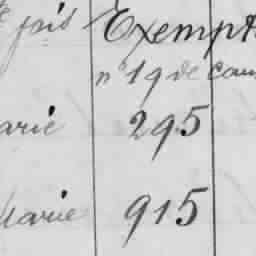 fois Exempt
n° 19 de cam
arie 295
Marie 915